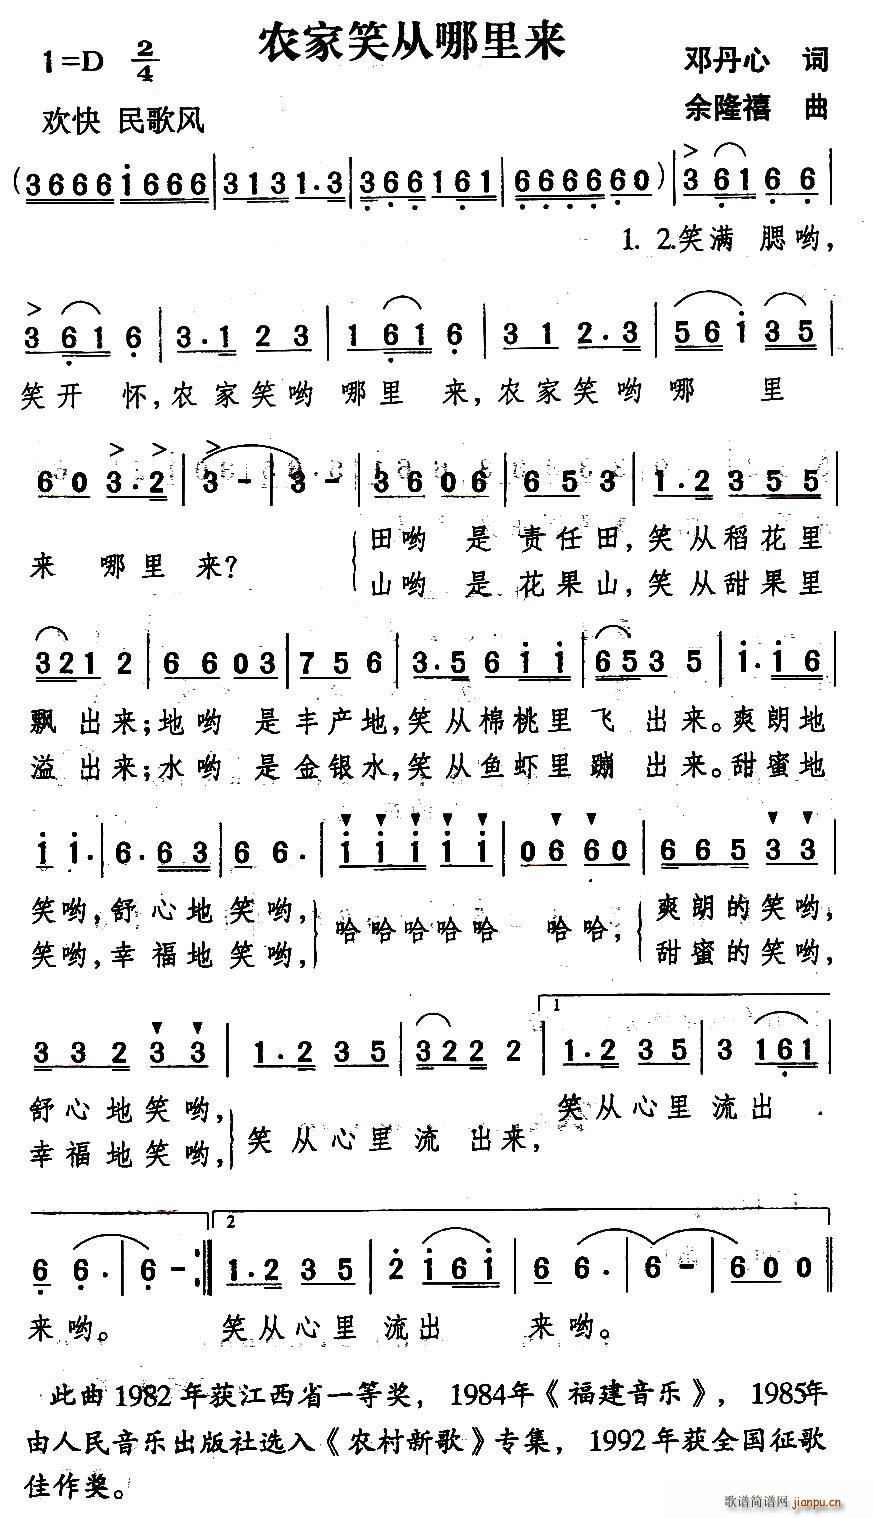 农家笑从哪里来
1=D 2/4
邓丹心 词
欢快 民歌风
余隆禧 曲
(3666i666|3131·3|366161|6666660)|36166|
1. 2.笑满 腮哟,
3616|3·123|1616|312·3|56i35|
笑开 怀,农家笑哟 哪里 来,农家笑哟哪 里
603·2|3-|3-|3606|653|1·2355|
来 哪里 来?
田哟 是 责任田,笑从稻花里
山哟 是 花果山,笑从甜果里
3212|6603|756|3·56ii|6535|i·i6|
飘出来;地哟 是丰产地,笑从棉桃里飞 出来。爽朗地
溢出来;水哟 是金银水,笑从鱼虾里蹦 出来。甜蜜地
ii·|6·63|66·|iiiii|0660|66533|
笑哟,舒心地笑哟,
哈哈哈哈哈 哈哈,
爽朗的笑哟,
笑哟,幸福地笑哟,
甜蜜的笑哟,
33233|1·235|3222|1·235|3161|
1
舒心地笑哟,
笑从心里流 出来,
笑从心里 流出
幸福地笑哟,
66·|6-:|1·235|2i6i|66·|6-|600|
2
来哟。 笑从心里 流出 来哟。
此曲1982年获江西省一等奖,1984年《福建音乐》,1985年
由人民音乐出版社选入《农村新歌》专集,1992年获全国征歌
佳作奖。
歌谱简谱网 jianpu.cn